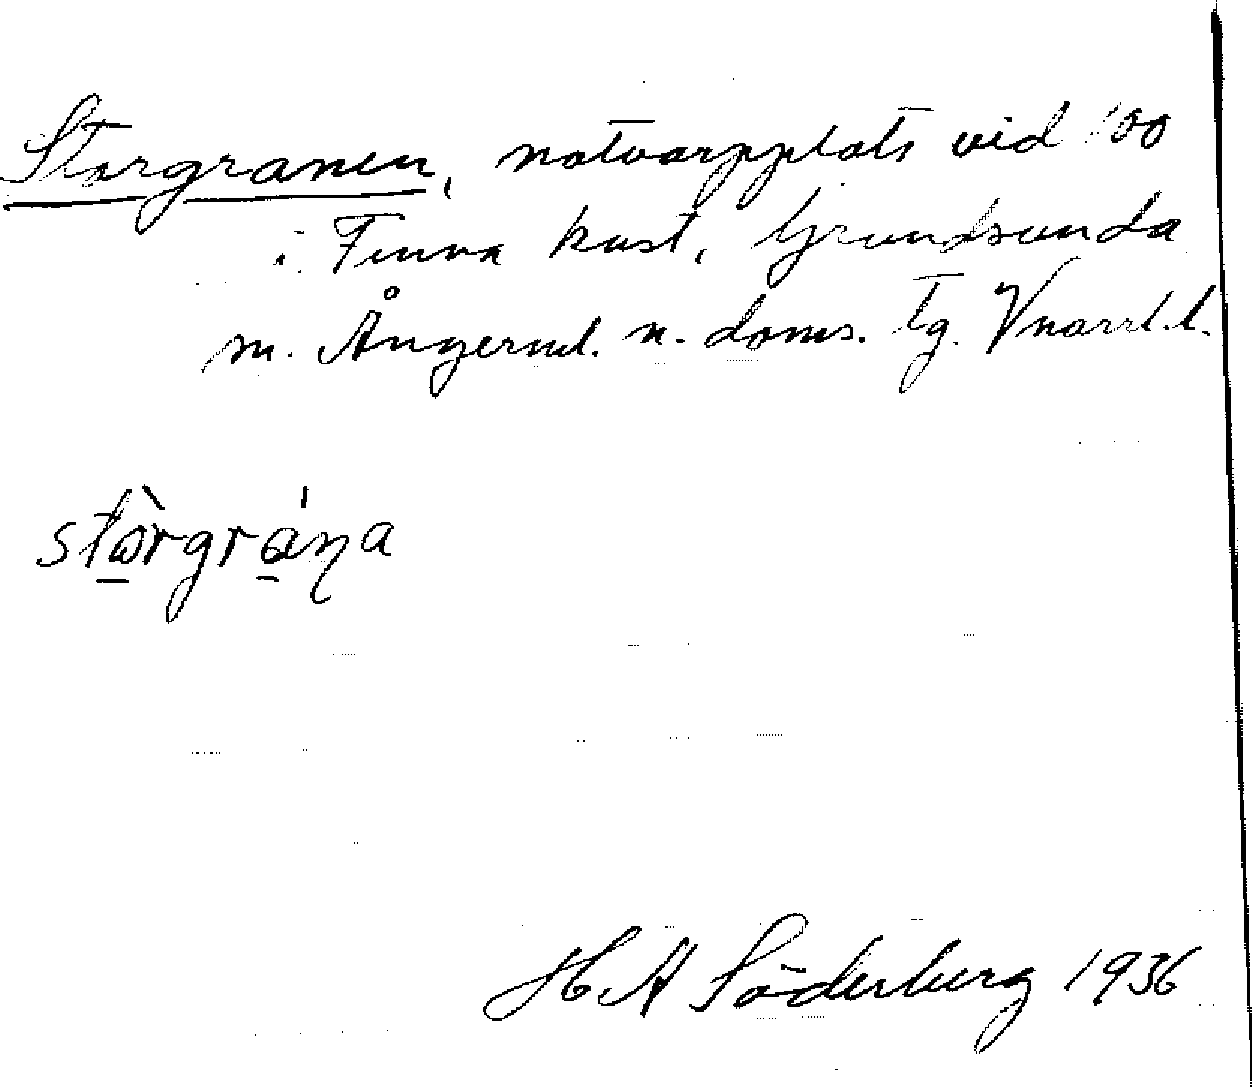 Storgranen, notvarpplats vid 100
i Finna kust, Grundsunda
sn. Ångerml. n. doms. tg. Vnorrl. l.
stὼrgrána
H. A Söderberg 1936